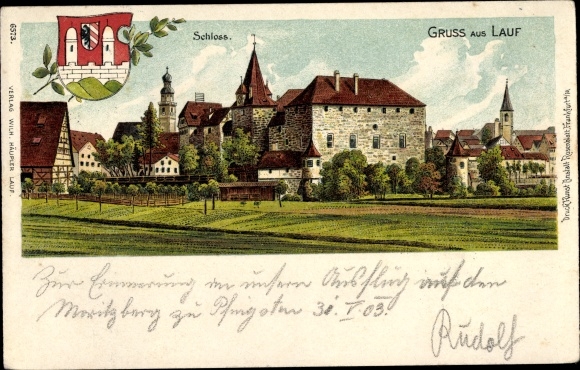 Schloss.
GRUSS AUS LAUF
6573.
VERLAG WILH. HÄUPLER LAUF.
Druck Kunst Anstalt Rosenblatt, Frankfurt a/M
Zur Erinnerung an unsern Ausflug auf den
Moritzberg zu Pfingsten 31. V. 03.
Rudolf